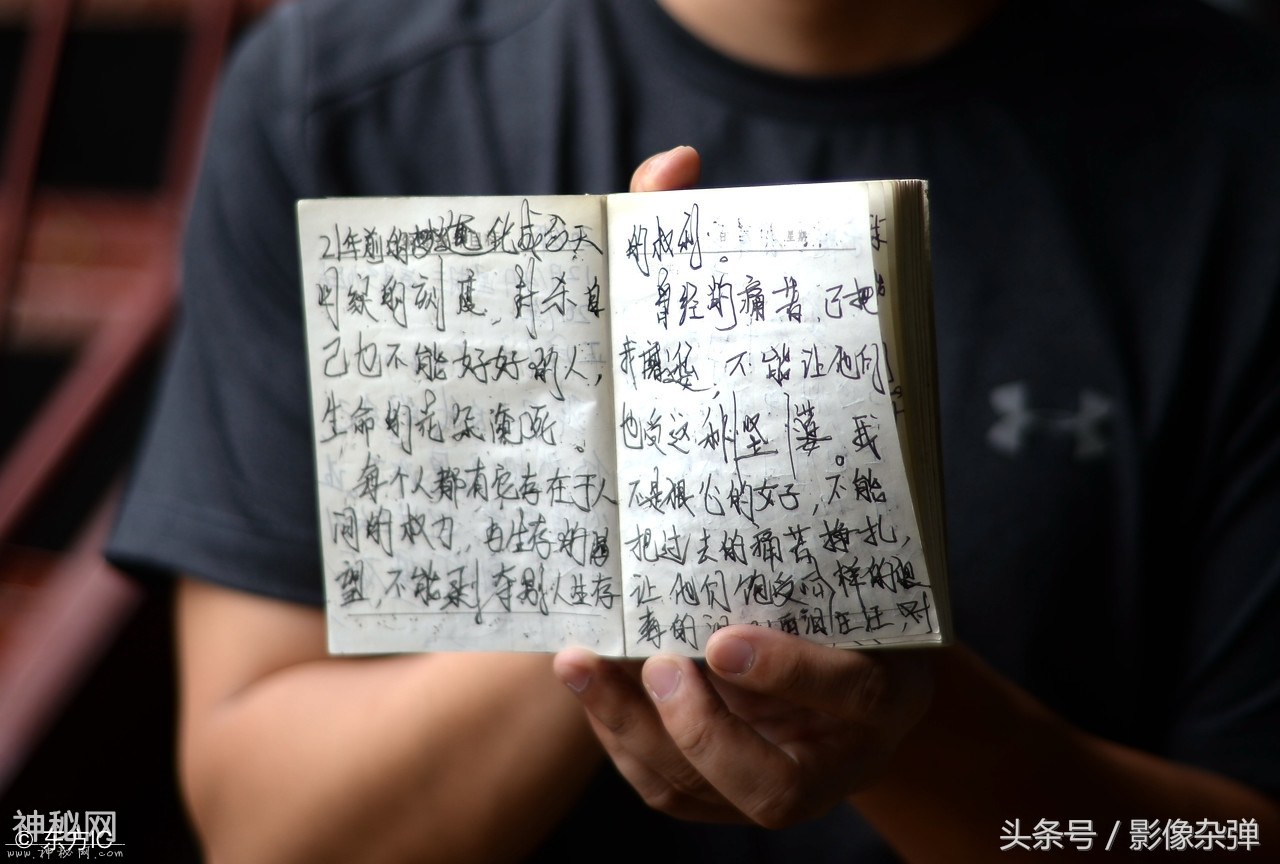 21年前的 化成今天
时候的刻度,封杀自
己也不能好好的人,
生命的花朵 死。
每个人都有它存在于人
间的权力,由生存的渴
望,不能剥夺别人生存
的权利。
曾经的痛苦,已把
我 ,不能让他们
也受这种 。我
不是狠心的女子,不能
把过去的痛苦挣扎,
让他们饱受同样的
的 泪汪汪,对
神秘网
© 东方IC
www.神秘网.com
头条号 / 影像杂弹